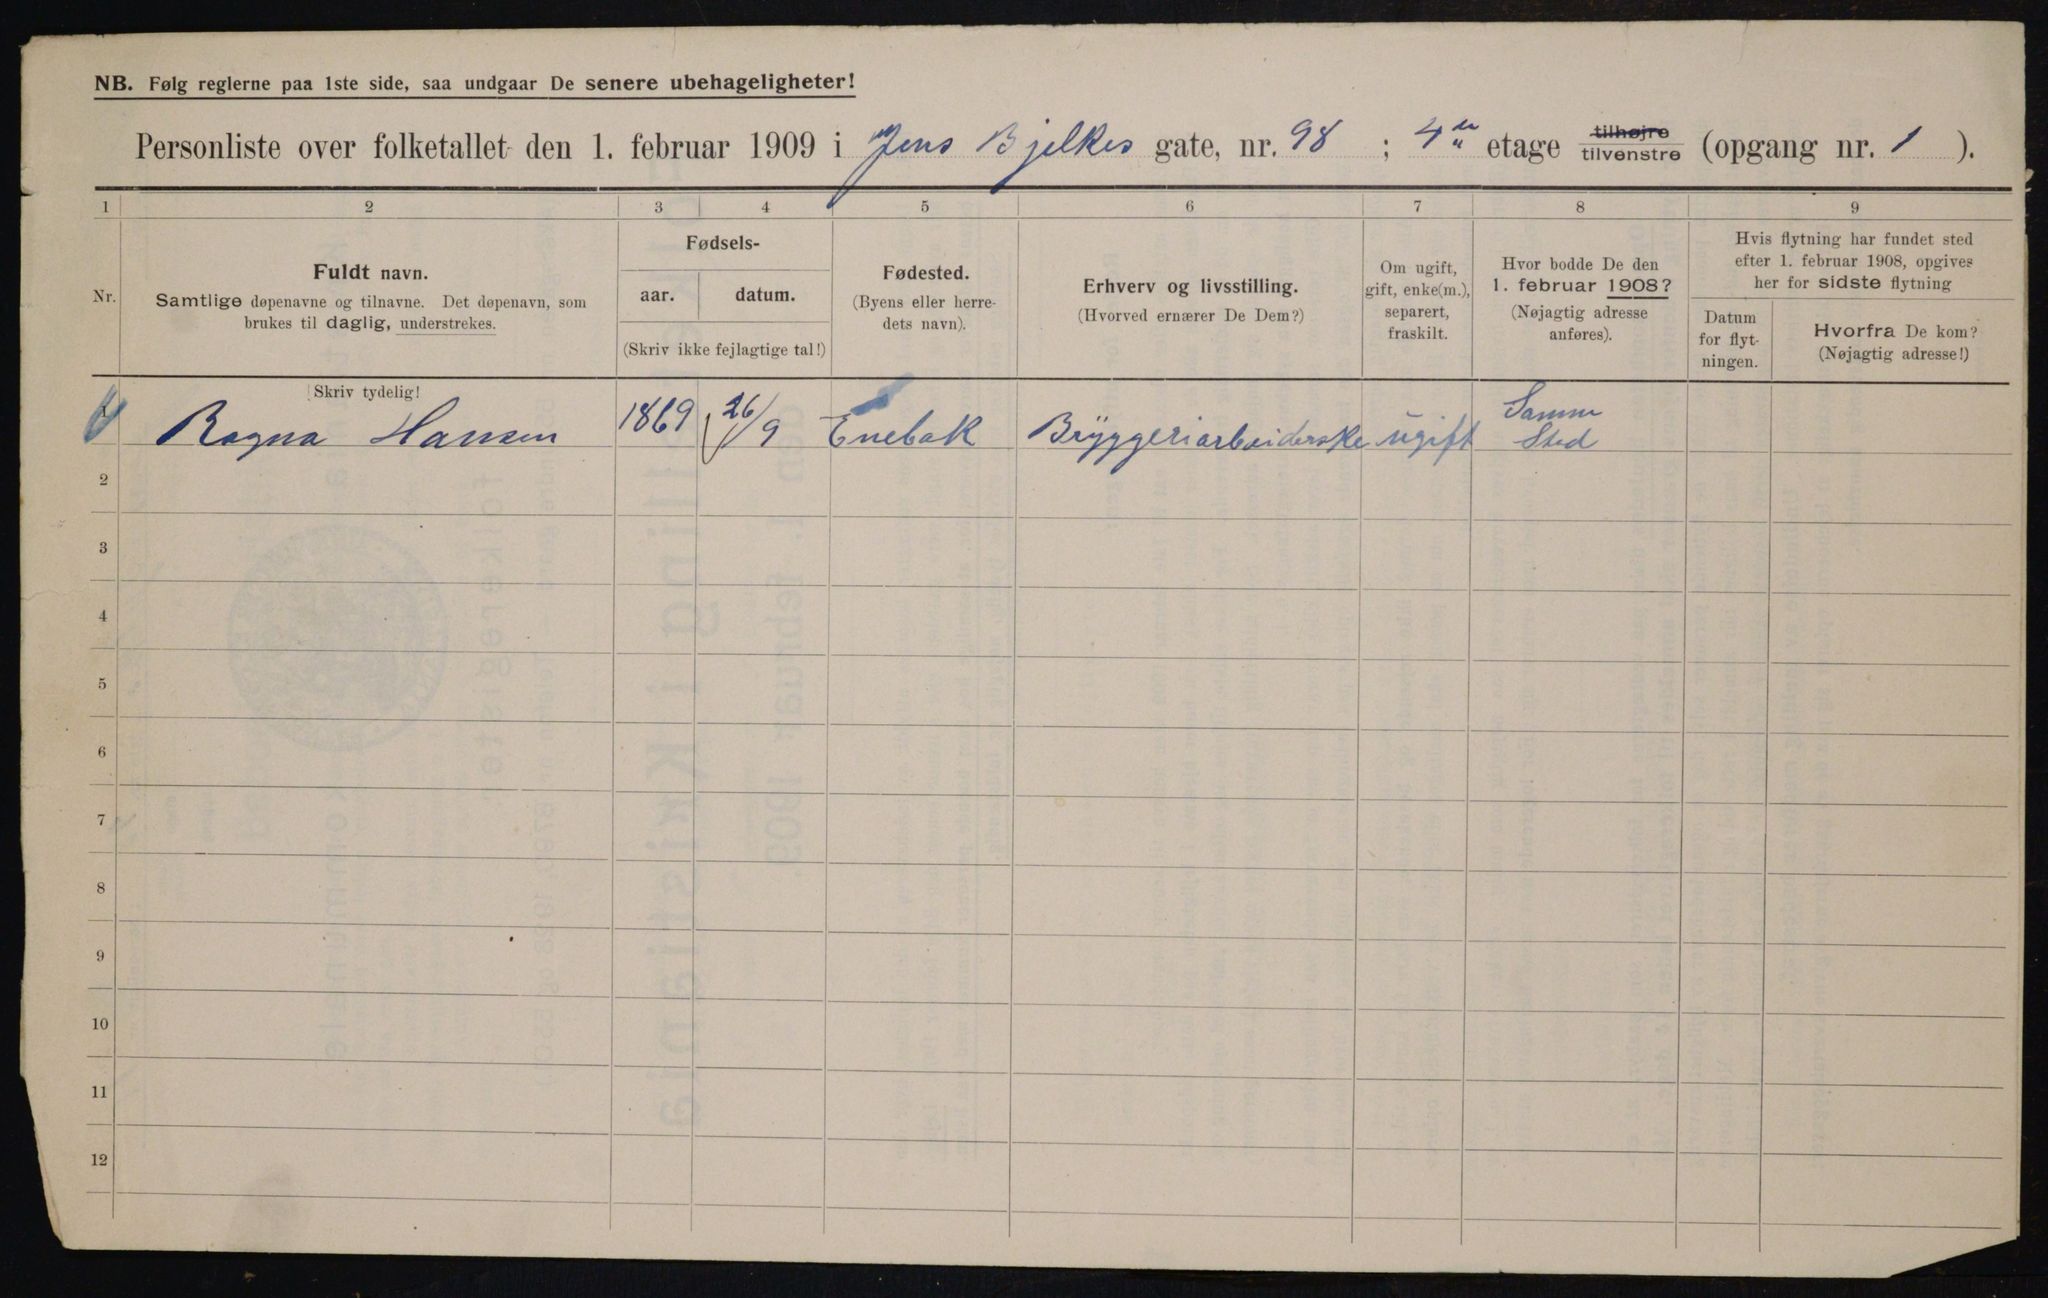 NB. Følg reglerne paa 1ste side, saa undgaar De senere ubehageligheter!
Personliste over folketallet den 1. februar 1909 i Jens Bjelkes gate, nr. 98 ; 4 etage tilhøjre tilvenstre (opgang nr. 1 ).
1 2 3 4 5 6 7 8 9
Nr.
Fuldt navn.
Samtlige døpenavne og tilnavne. Det døpenavn, som
brukes til daglig, understrekes.
Fødsels-
aar. datum.
(Skriv ikke fejlagtige tal!)
Fødested.
(Byens eller herre-
dets navn).
Erhverv og livsstilling.
(Hvorved ernærer De Dem?)
Om ugift,
gift, enke(m.),
separert,
fraskilt.
Hvor bodde De den
1. februar 1908?
(Nøjagtig adresse
anføres).
Hvis flytning har fundet sted
efter 1. februar 1908, opgives
her for sidste flytning
Datum
for flyt-
ningen.
Hvorfra De kom?
(Nøjagtig adresse!)
Skriv tydelig!
1 Ragna Hansen 1869 26/9 Enebak Bryggeriarbeiderske ugift Samme
Sted
2
3
4
5
6
7
8
9
10
11
12